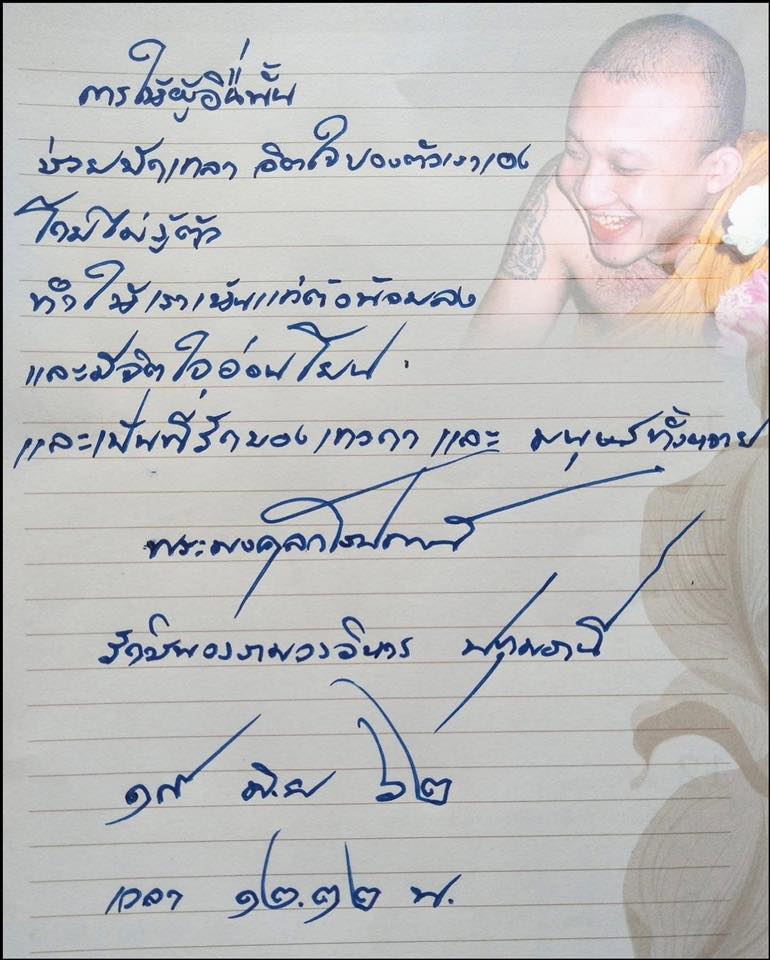 การให้ผู้อื่นนั้น
ช่วยขัดเกลา จิตใจของตัวเราเอง
โดยไม่รู้ตัว
ทำให้เราเห็นแก่ตัวน้อยลง
และมีจิตใจอ่อนโยน
และเป็นที่รักของเทวดา และ มนุษย์ทั้งหลาย
พระมงคล
วัด วรวิหาร ปทุมธานี
๑๙ มิ.ย ๖๒
เวลา ๑๒.๓๒ น.